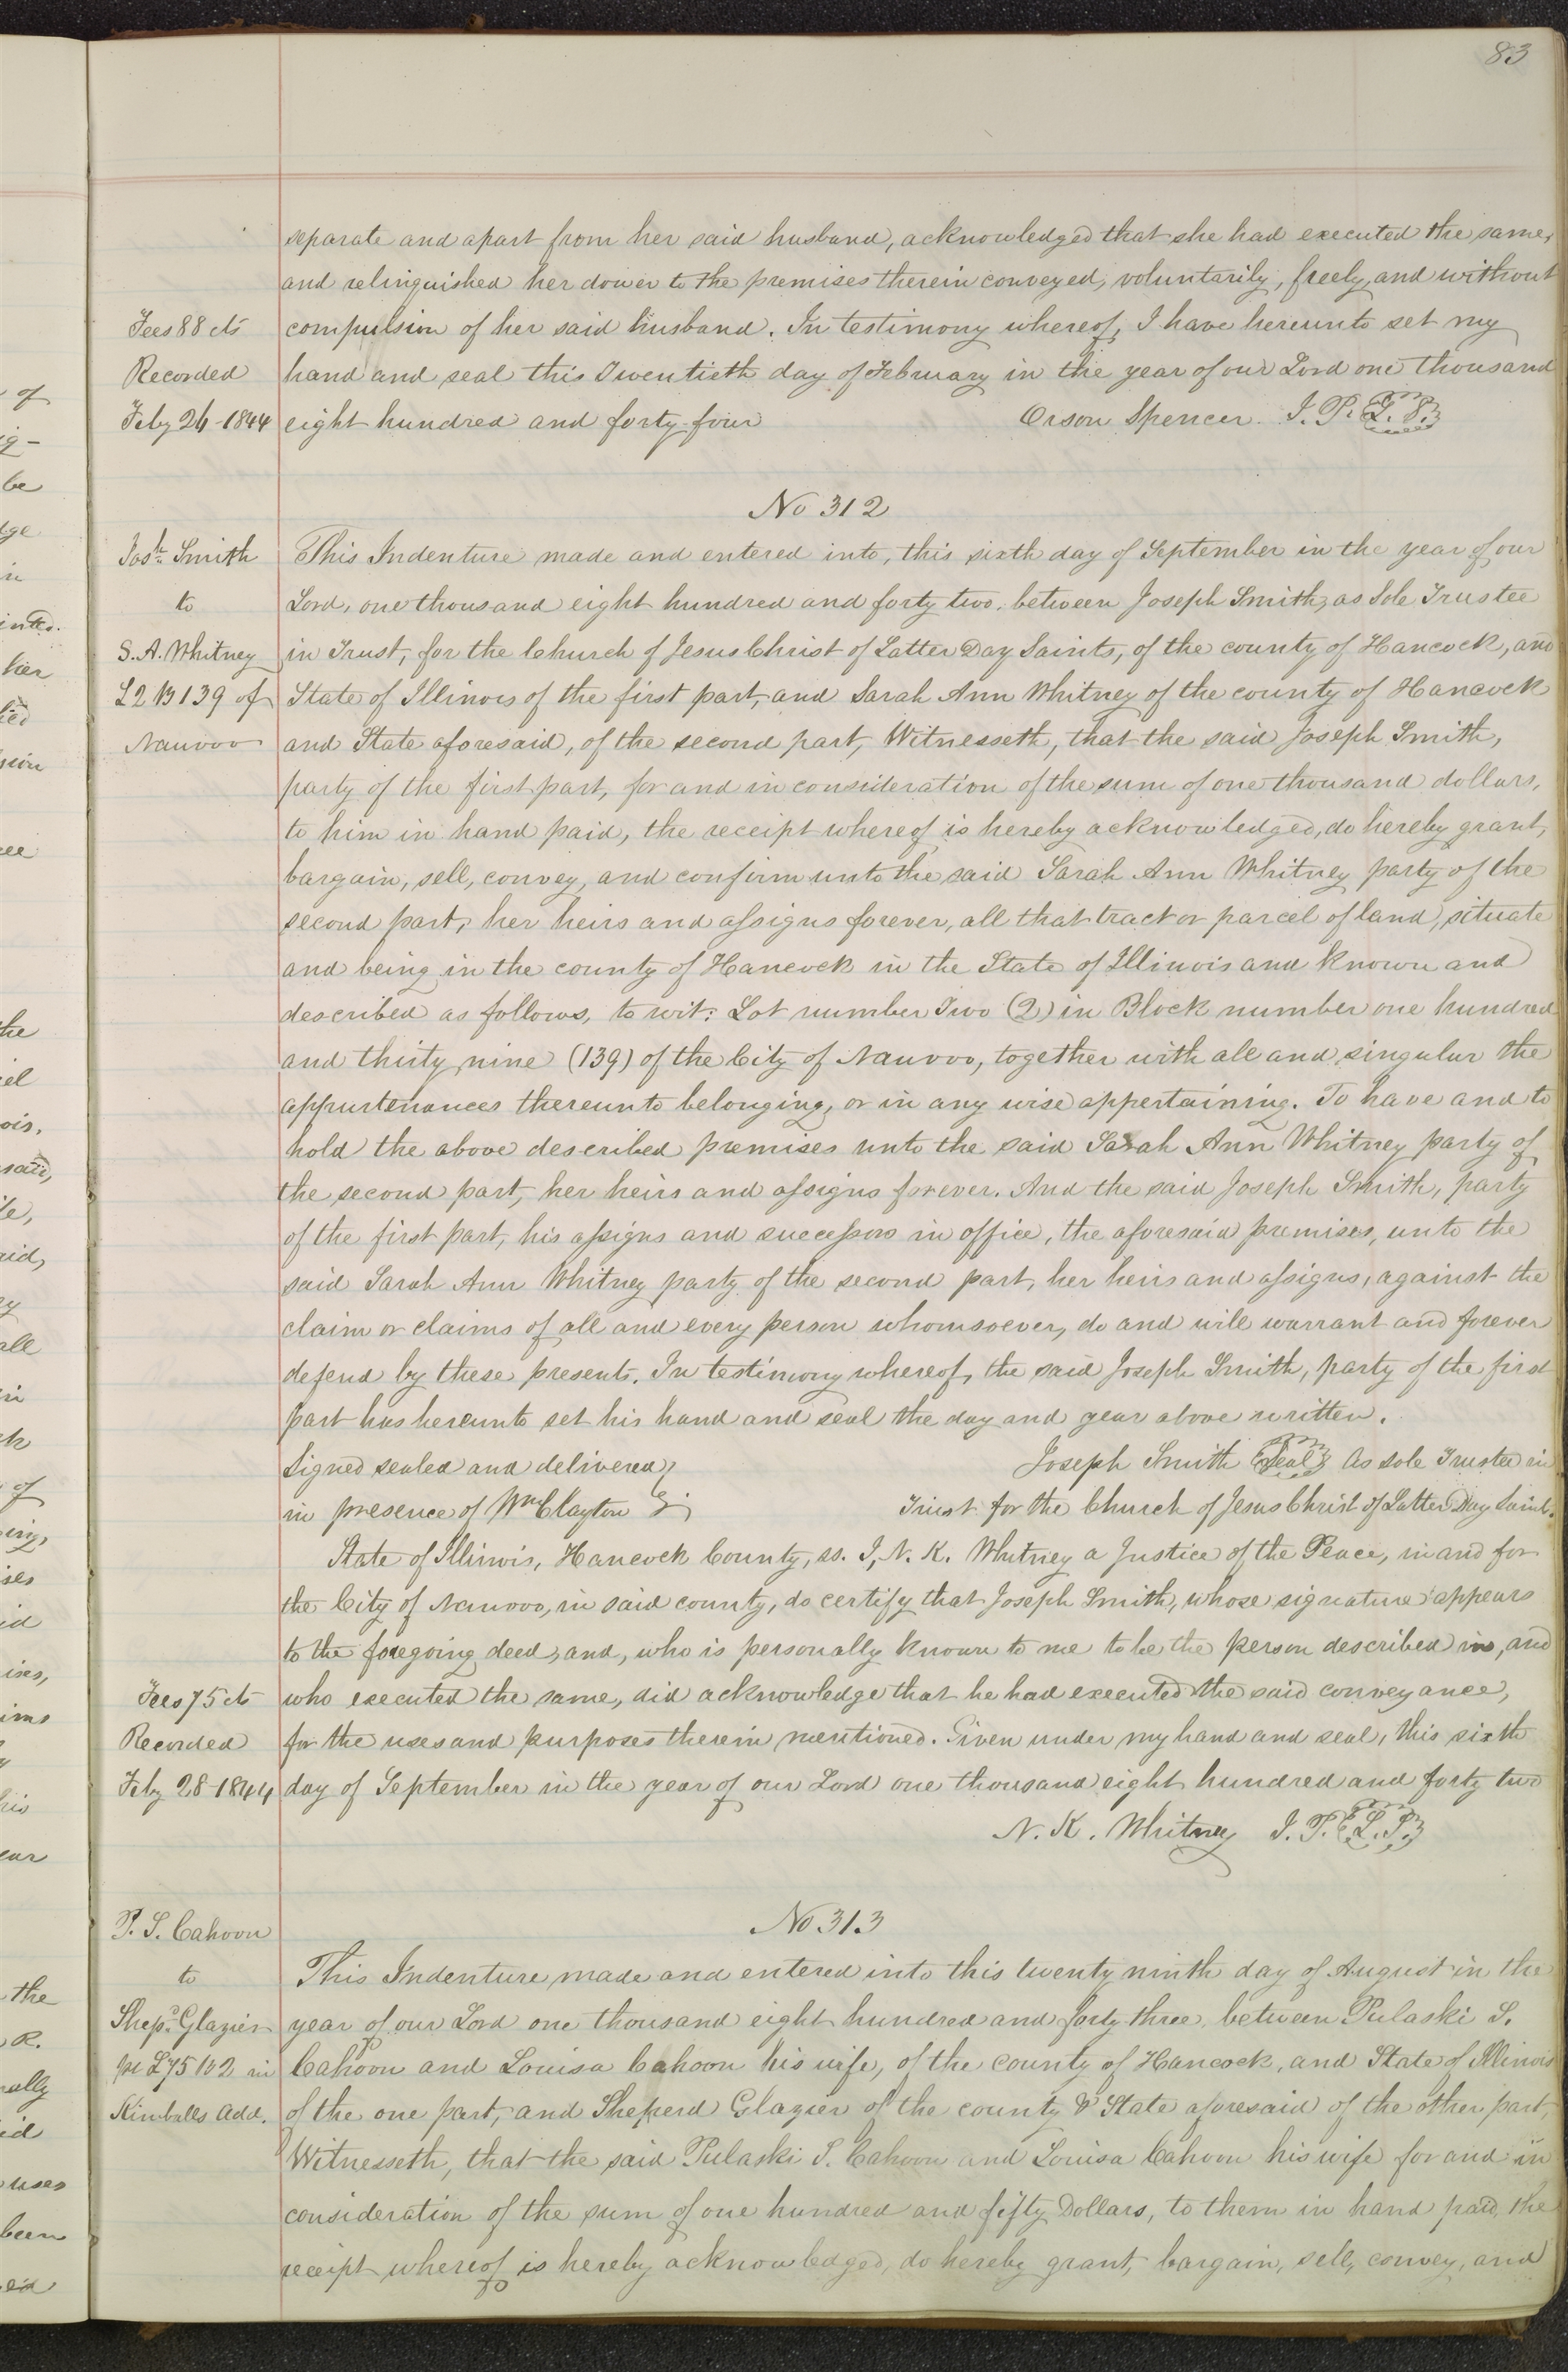 83
separate and apart from her said husband, acknowledged that she had executed the same,
and relinquished her dower to the premises therein conveyed, voluntarily, freely, and without
Fees 88 cts compulsion of her said husband. In testimony whereof, I have hereunto set my
Recorded hand and seal this Twentieth day of February in the year of our Lord one thousand
Feby 26-1844 eight hundred and forty four Orson Spencer. J. P. L. S.
No 312
Josh. Smith This Indenture made and entered into, this sixth day of September in the year of our
to Lord, one thousand eight hundred and forty two, between Joseph Smith, as Sole Trustee
S. A. Whitney in Trust, for the Church of Jesus Christ of Latter Day Saints, of the county of Hancock, and
L 2 B 139 of State of Illinois of the first part, and Sarah Ann Whitney of the county of Hancock
Nauvoo and State aforesaid, of the second part, Witnesseth, that the said Joseph Smith,
party of the first part, for and in consideration of the sum of one thousand dollars,
to him in hand paid, the receipt whereof is hereby acknowledged, do hereby grant,
bargain, sell, convey, and confirm unto the said Sarah Ann Whitney party of the
second part, her heirs and assigns forever, all that tract or parcel of land, situate
and being in the county of Hancock in the State of Illinois and known and
described as follows, to wit: Lot number Two (2) in Block number one hundred
and thirty nine (139) of the City of Nauvoo, together with all and singular the
appurtenances thereunto belonging, or in any wise appertaining. To have and to
hold the above described premises unto the said Sarah Ann Whitney party of
the second part, her heirs and assigns forever. And the said Joseph Smith, party
of the first part, his assigns and successors in office, the aforesaid premises, unto the
said Sarah Ann Whitney party of the second part, her heirs and assigns, against the
claim or claims of all and every person whomsoever, do and will warrant and forever
defend by these presents. In testimony whereof, the said Joseph Smith, party of the first
part has hereunto set his hand and seal the day and year above written.
Signed sealed and delivered Joseph Smith Seal As sole Trustee in
in presence of Wm Clayton Trust for the Church of Jesus Christ of Latter Day Saints.
State of Illinois, Hancock County, ss. I, N. K. Whitney a Justice of the Peace, in and for
the City of Nauvoo, in said county, do certify that Joseph Smith, whose signature appears
to the foregoing deed, and, who is personally known to me to be the person described in, and
Fees 75 cts who executed the same, did acknowledge that he had executed the said conveyance,
Recorded for the uses and purposes therein mentioned. Given under my hand and seal, this sixth
Feby 28-1844 day of September in the year of our Lord one thousand eight hundred and forty two
N. K. Whitney J. P. L. S.
No 313
P. S. Cahoon
to This Indenture made and entered into this twenty ninth day of August in the
Shepd. Glazier year of our Lord one thousand eight hundred and forty three, between Pulaski S.
pt L 75 B 2 in Cahoon and Louisa Cahoon his wife, of the county of Hancock, and State of Illinois
Kimballs Add. of the one part, and Sheperd Glazier of the county & State aforesaid of the other part,
Witnesseth, that the said Pulaski S. Cahoon and Louisa Cahoon his wife for and in
consideration of the sum of one hundred and fifty Dollars, to them in hand paid, the
receipt whereof is hereby acknowledged, do hereby grant, bargain, sell, convey, and